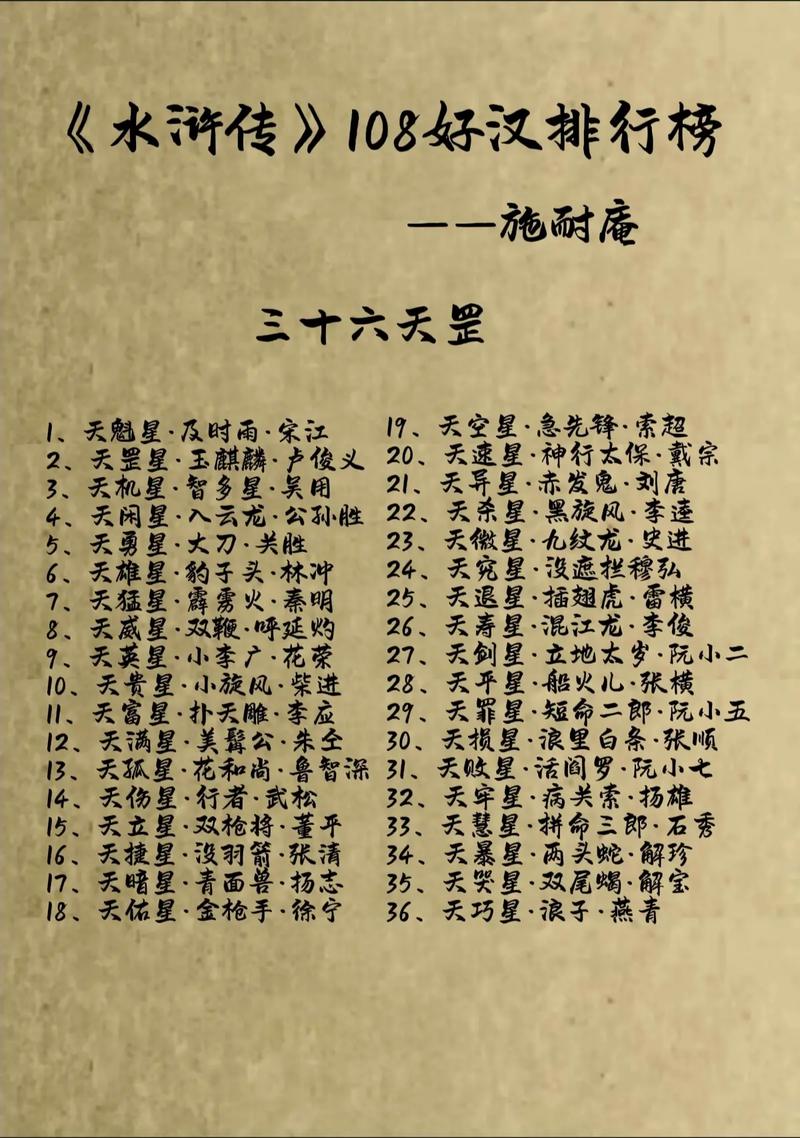 《水浒传》108好汉排行榜
——施耐庵
三十六天罡
1、天魁星·及时雨·宋江
2、天罡星·玉麒麟·卢俊义
3、天机星·智多星·吴用
4、天闲星·入云龙·公孙胜
5、天勇星·大刀·关胜
6、天雄星·豹子头·林冲
7、天猛星·霹雳火·秦明
8、天威星·双鞭·呼延灼
9、天英星·小李广·花荣
10、天贵星·小旋风·柴进
11、天富星·扑天雕·李应
12、天满星·美髯公·朱仝
13、天孤星·花和尚·鲁智深
14、天伤星·行者·武松
15、天立星·双枪将·董平
16、天捷星·没羽箭·张清
17、天暗星·青面兽·扬志
18、天佑星·金枪手·徐宁
19、天空星·急先锋·索超
20、天速星·神行太保·戴宗
21、天异星·赤发鬼·刘唐
22、天杀星·黑旋风·李逵
23、天微星·九纹龙·史进
24、天究星·没遮拦穆弘
25、天退星·插翅虎·雷横
26、天寿星·混江龙·李俊
27、天剑星·立地太岁·阮小二
28、天平星·船火儿·张横
29、天罪星·短命二郎·阮小五
30、天损星·浪里白条·张顺
31、天败星·活阎罗·阮小七
32、天牢星·病关索·扬雄
33、天慧星·拼命三郎·石秀
34、天暴星·两头蛇·解珍
35、天哭星·双尾蝎·解宝
36、天巧星·浪子·燕青